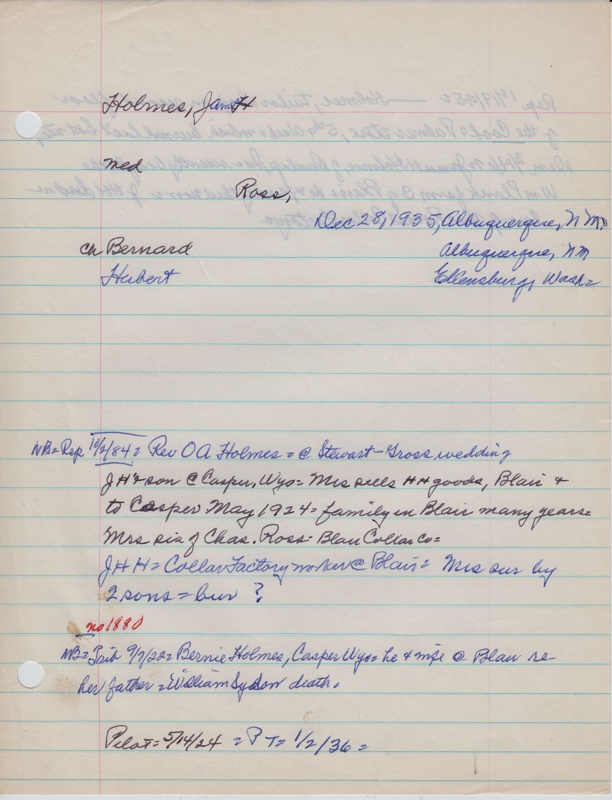 Holmes, James H
med
Ross,
Dec 28, 1935, Albuquerque, N M.
Ch Bernard Albuquerque, NM
Hubert Ellensburg, Wash=
NB= Rep 10/2/84= Rev O A Holmes = @ Stewart-Gross wedding
J H & son @ Casper, Wyo= Mrs sells HH goods, Blair &
to Casper May 1924= family in Blair many years=
Mrs sis of Chas. Ross= Blair Collar Co=
J H H = Collar Factory worker @ Blair= Mrs sur by
2 sons = bur ?
no 1880
NB= Trib 9/7/22= Bernie Holmes, Casper Wyo= he & wife @ Blair re-
her father = William death.
Pilot= 5/14/24 = P T= 1/2/36 =